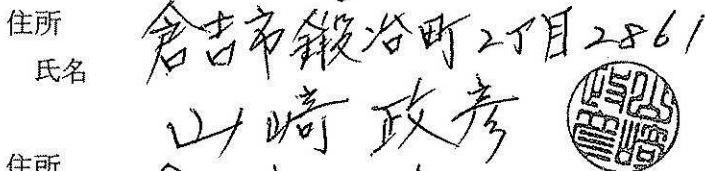 住所 倉吉市鍛冶町2丁目2861
氏名 山﨑 政彦
住所